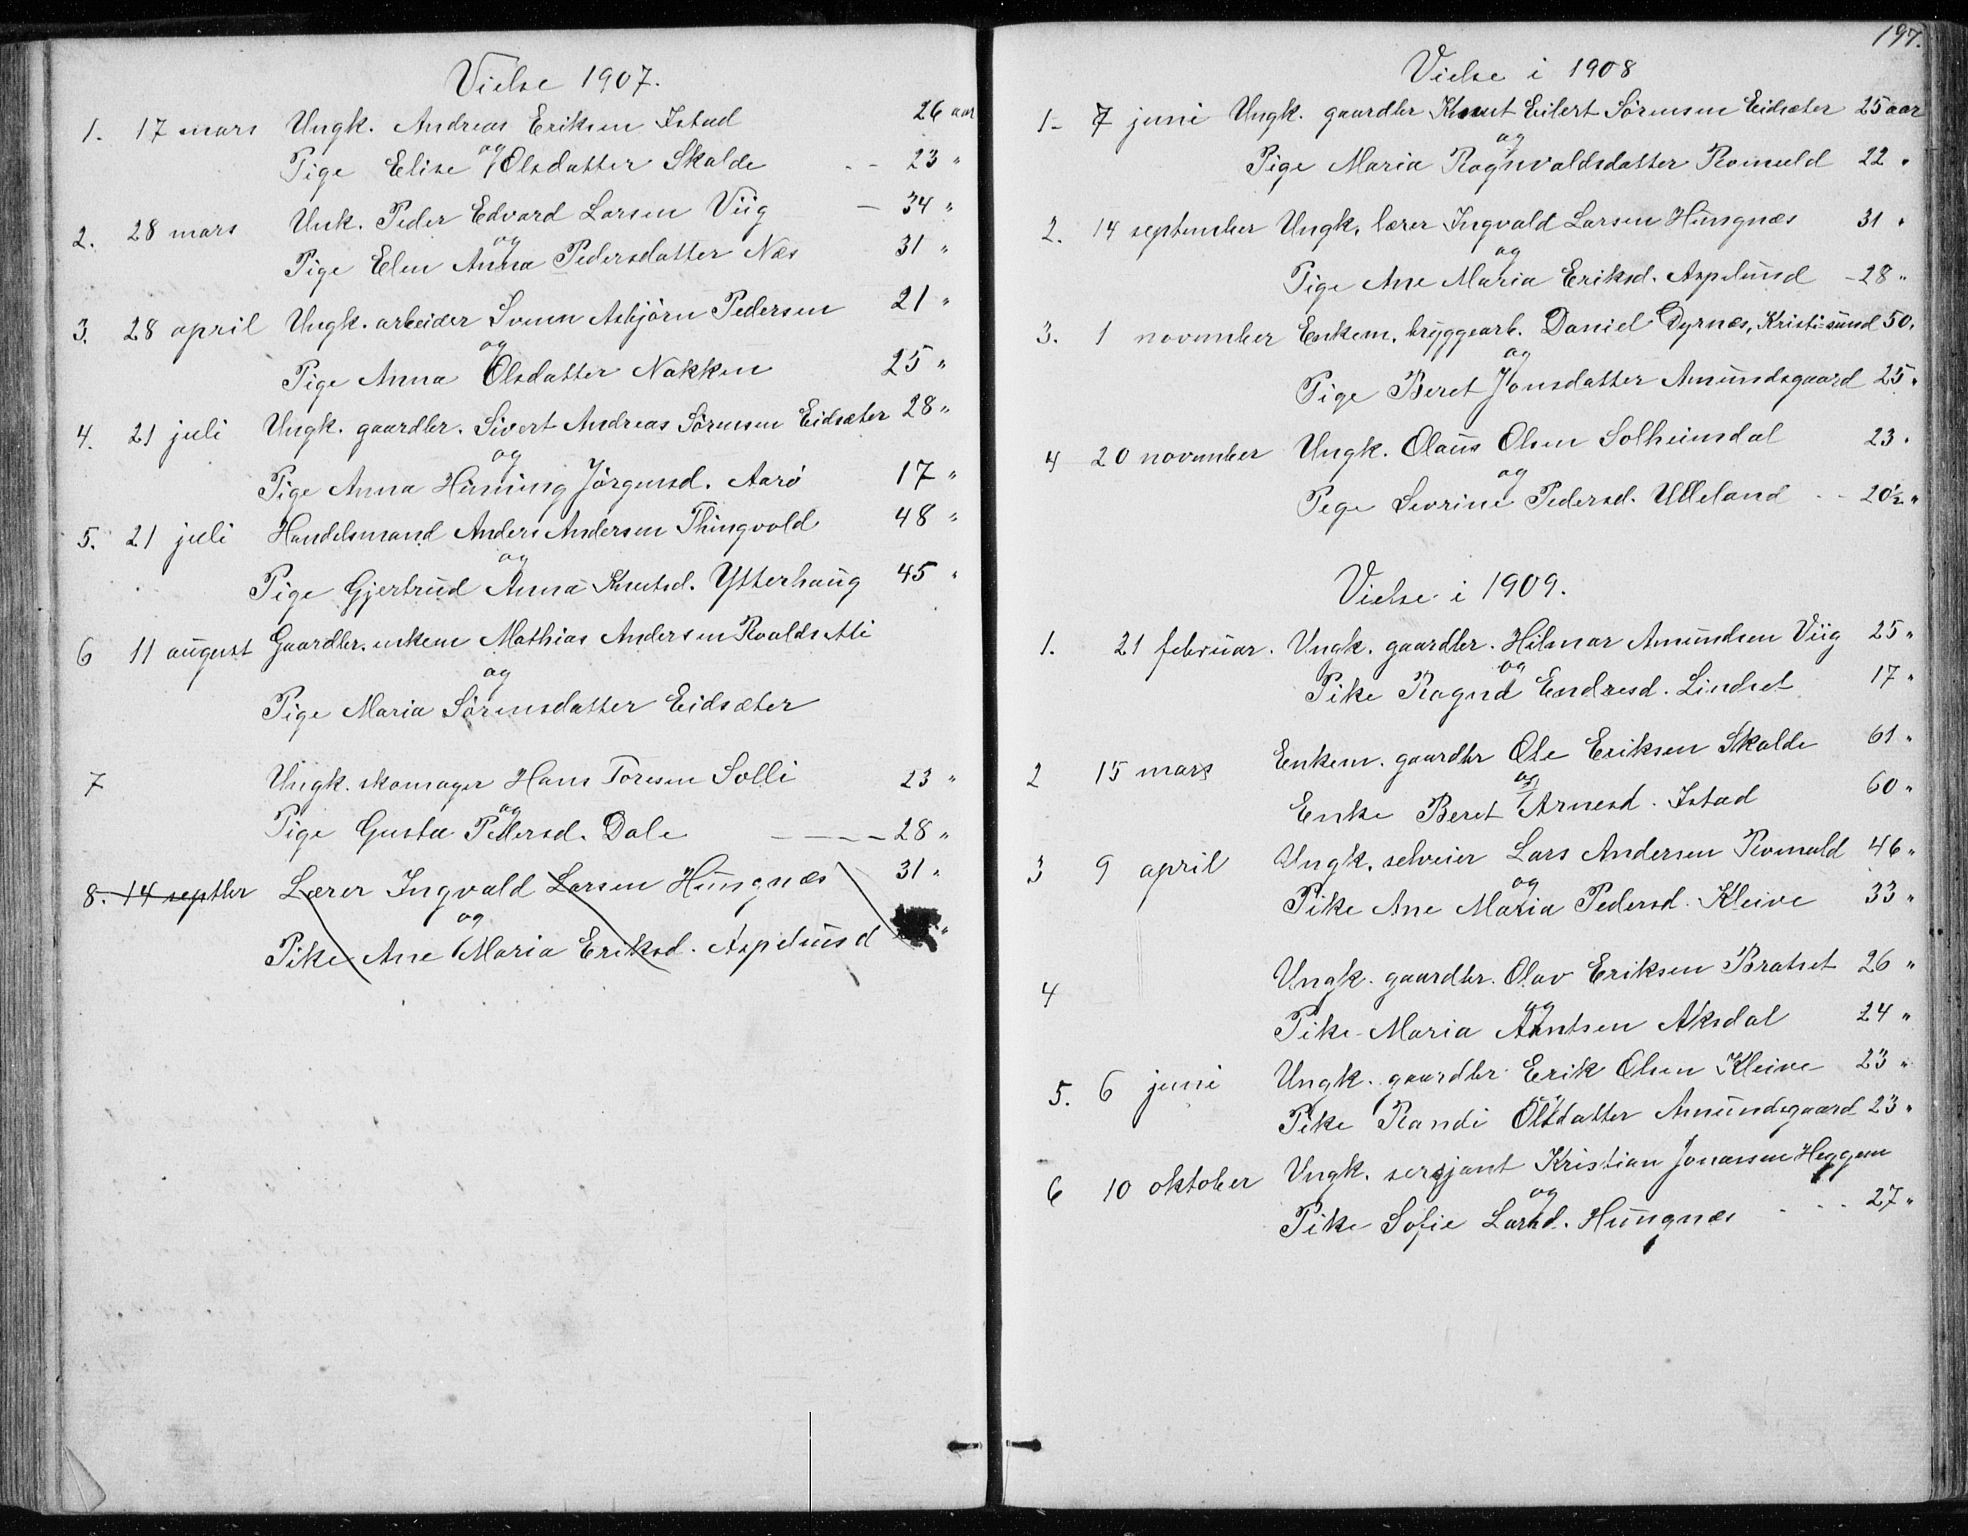 Vielse 1907.
1. 17 mars Ungk. Andreas Eriksen Istad 26 aar
og
Pige Elise Olsdatter Skalde - - 23 "
2. 28 mars Unk. Peder Edvard Larsen Viig — 34 "
og
Pige Elen Anna Pedersdatter Næs 31 "
3. 28 april Ungk. arbeider Svenn Asbjørn Pedersen 21 "
og
Pige Anna Olsdatter Nakken 25 "
4. 21 juli Ungk. gaardbr. Sivert Andreas Sørensen Eidsæter 28 "
og
Pige Anna Jørgensd. Aarö 17 "
5. 21 juli Handelsmand Anders Andersen Thingvold 48 "
og
Pige Gjertrud Anna Knutsd. Ytterhaug 45 "
6 11 august Gaardbr. enkem Mathias Andersen Roaldsætli
og
Pige Maria Sörensdatter Eidsæter
7 Ungk. skomager Hans Toresen Solli 23 "
og
Pige Gusta Pedersd. Dale - - - - 28 "
8. 14 septbr Lærer Ingvald Larsen Hungnæs 31 "
og
Pike Ane Maria Eriksd. Aspelund "
197.
Vielse i 1908
1- 7 juni Ungk. gaardbr Knut Eilert Sörensen Eidsæter 25 aar
og
Pige Maria Ragnvaldsdatter Romuld 22 "
2. 14 september Ungk. lærer Ingvald Larsen Hungnæs 31 "
og
Pige Ane Maria Eriksd. Aspelund - 28 "
3. 1 november Enkem. bryggearb. Daniel Dyrnæs, Kristi=sund 50.
og
Pige Beret Jonsdatter Amundsgaard 25 "
4 20 november Ungk. Olaus Olsen Solheimsdal 23 "
og
Pege Sevrine Pedersd. Ulleland - - 20½ "
Vielse i 1909.
1. 21 februar. Ungk. gaardbr. Hilmar Amundsen Viig 25 "
og
Pike Ragna Endresd. Lindset 17 "
2 15 mars Enkem. gaardbr Ole Eriksen Skalde 61 "
og
Enke Beret Arnesd. Istad 60 "
3 9 april Ungk. selveier Lars Andersen Romuld 46 "
og
Pike Ane Maria Pedersd. Kleive 33 "
4 Ungk. gaardbr. Olav Eriksen Bratset 26 "
og
Pike Maria Arntsen Aksdal 24 "
5. 6 juni Ungk. gaardbr Erik Olsen Kleive 23 "
Pike Randi Olsdatter Amundsgaard 23 "
6 10 oktober Ungk. sersjant Kristian Jonassen Heggem
og
Pike Sofie Larsd. Hungnæs - - - 27 "